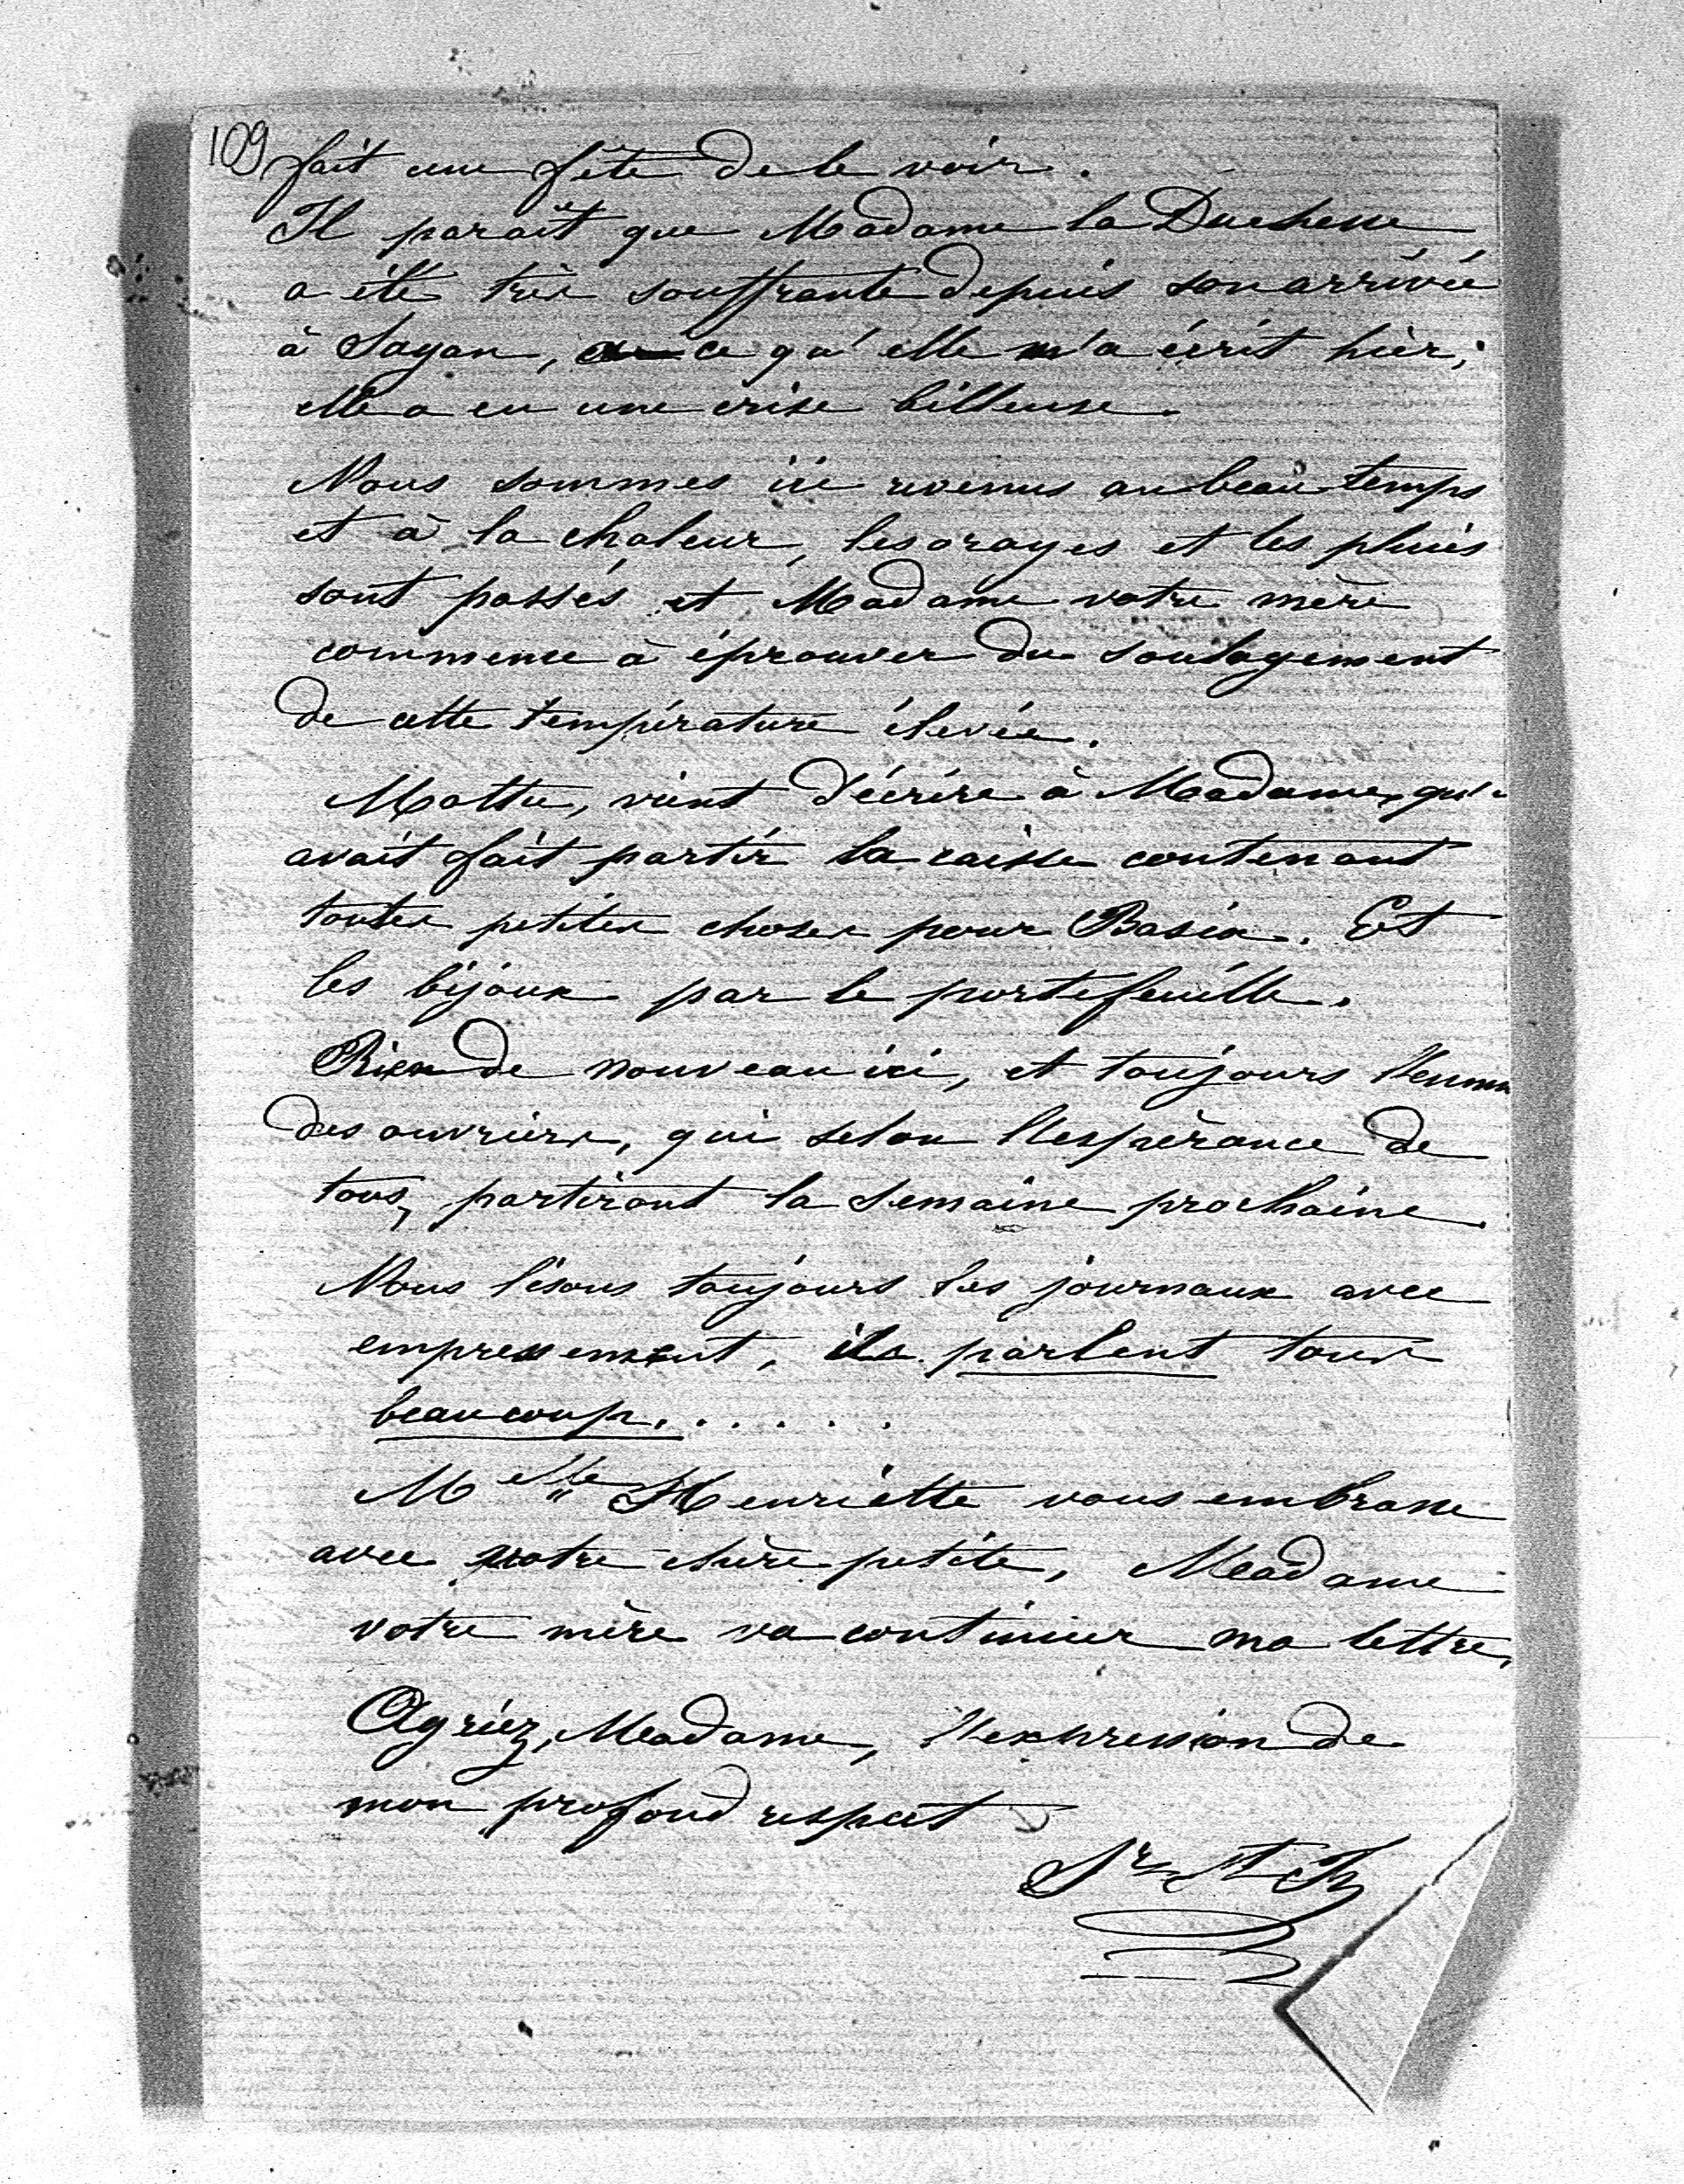 109
fait une fête de le voir.
Il paraît que Madame la Duchesse
a été très souffrante depuis son arrivée
à Sagan, ce qu'elle m'a écrit hier;
elle a eu une crise billeuse.
Nous sommes ici revenus au beau temps
et à la chaleur, les orages et les pluies
sont passés et Madame votre mère
commence à éprouver du soulagement
de cette température élevée.
Mattu, vient d'écrire à Madame, qu'a
avait fait partir la caisse contenant
toutes petites choses pour Basia. Et
les bijoux par le portefeuille.
Rien de nouveau ici, et toujours l'ennui
des ouvriers, qui selon l'espérance de
tous, partiront la semaine prochaine.
Nous lisons toujours les journaux avec
empressement, ils parlent tous
beaucoup. . . . . .
Melle Henriette vous embrasse
avec votre chère petite, Madame
votre mère va continuer ma lettre.
Agréez, Madame, l'expression de
mon profond respect